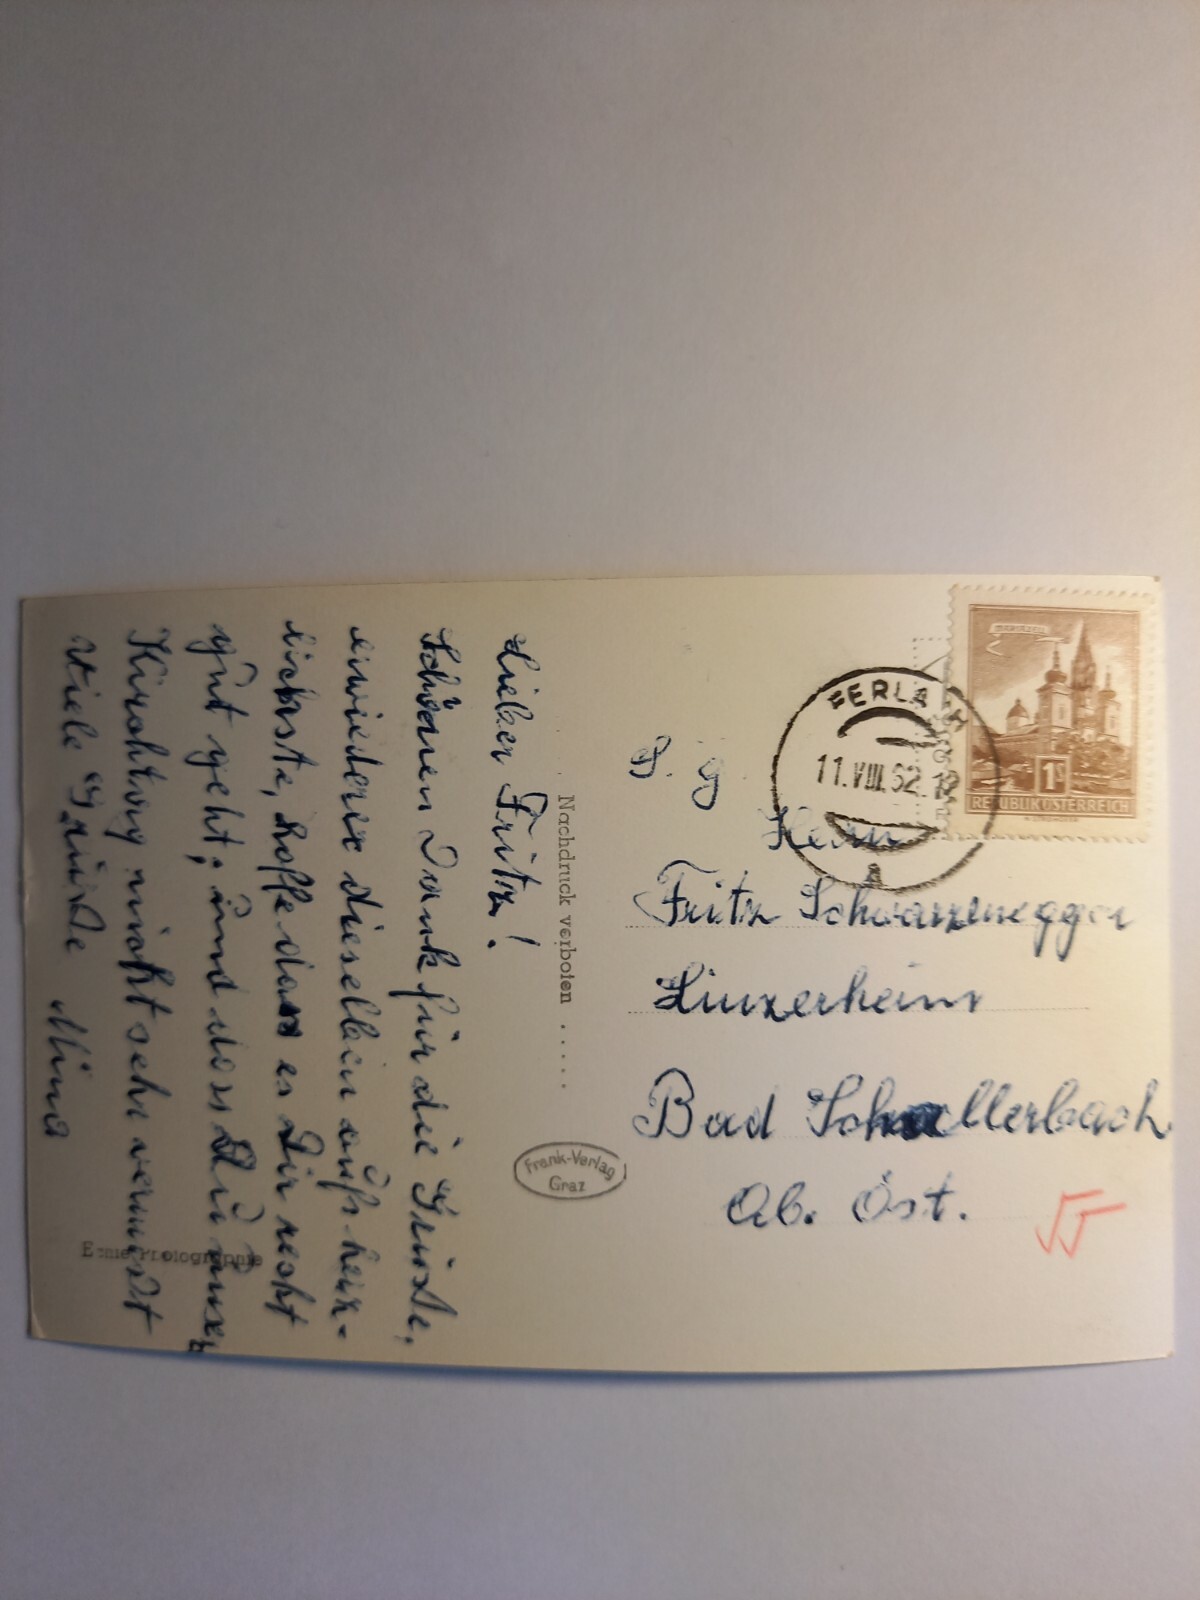 Lieber Fritz!
Schönen Dank für die Grüsse,
erwiedere dieselben aufs herz-
lichste, hoffe dass es Dir recht
gut geht; und dass Du unser
Kirchtag nicht sehr vermisst
Viele Grüsse Mina
Echte Photographie
Nachdruck verboten . . . . .
Frank-Verlag
Graz
FERLACH
11.VIII.62.12
a
MARIAZELL
1S
REPUBLIK ÖSTERREICH
S. g.
Herrn
Fritz Schwarzenegger
Linzerheim
Bad Schallerbach
Ob. Öst.